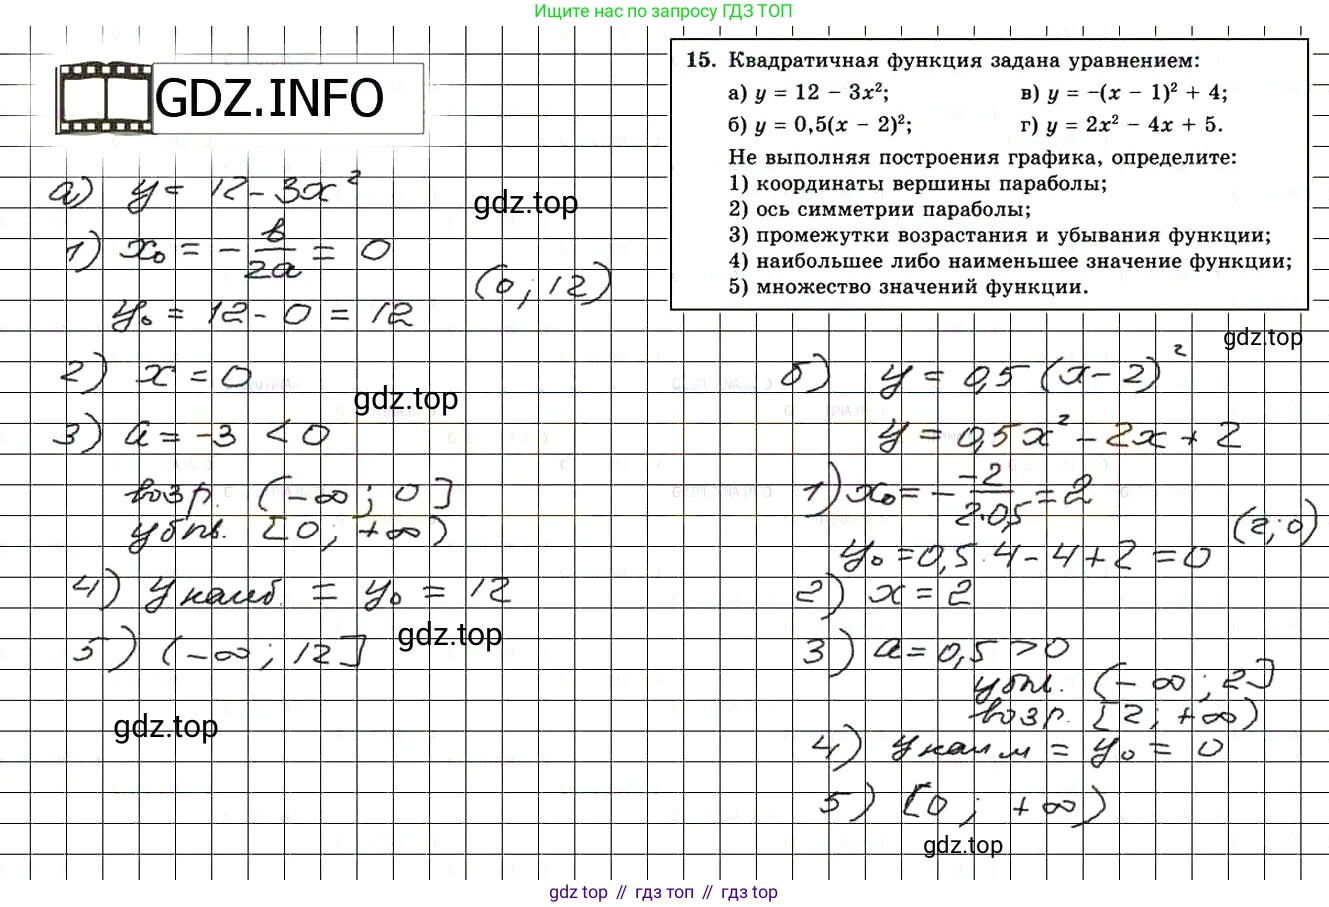 Ищите нас по запросу ГДЗ ТОП
GDZ.INFO
15. Квадратичная функция задана уравнением:
а) y = 12 − 3x²; в) y = −(x − 1)² + 4;
б) y = 0,5(x − 2)²; г) y = 2x² − 4x + 5.
Не выполняя построения графика, определите:
1) координаты вершины параболы;
2) ось симметрии параболы;
3) промежутки возрастания и убывания функции;
4) наибольшее либо наименьшее значение функции;
5) множество значений функции.
а) y = 12 - 3x²
gdz.top
1) x₀ = - в/2a = 0
(0; 12)
y₀ = 12 - 0 = 12
2) x = 0
gdz.top
3) a = -3 < 0
возр. (-∞; 0]
убыв. [0; +∞)
4) y наиб. = y₀ = 12
gdz.top
5) (-∞; 12]
gdz.top
gdz.top
б) y = 0,5 (x - 2)²
y = 0,5x² - 2x + 2
1) x₀ = - -2/2·0,5 = 2
(2; 0)
y₀ = 0,5·4 - 4 + 2 = 0
2) x = 2
3) a = 0,5 > 0
убыв. (-∞; 2]
возр. [2; +∞)
4) y наим = y₀ = 0
5) [0; +∞)
gdz.top
gdz top // гдз топ // gdz top